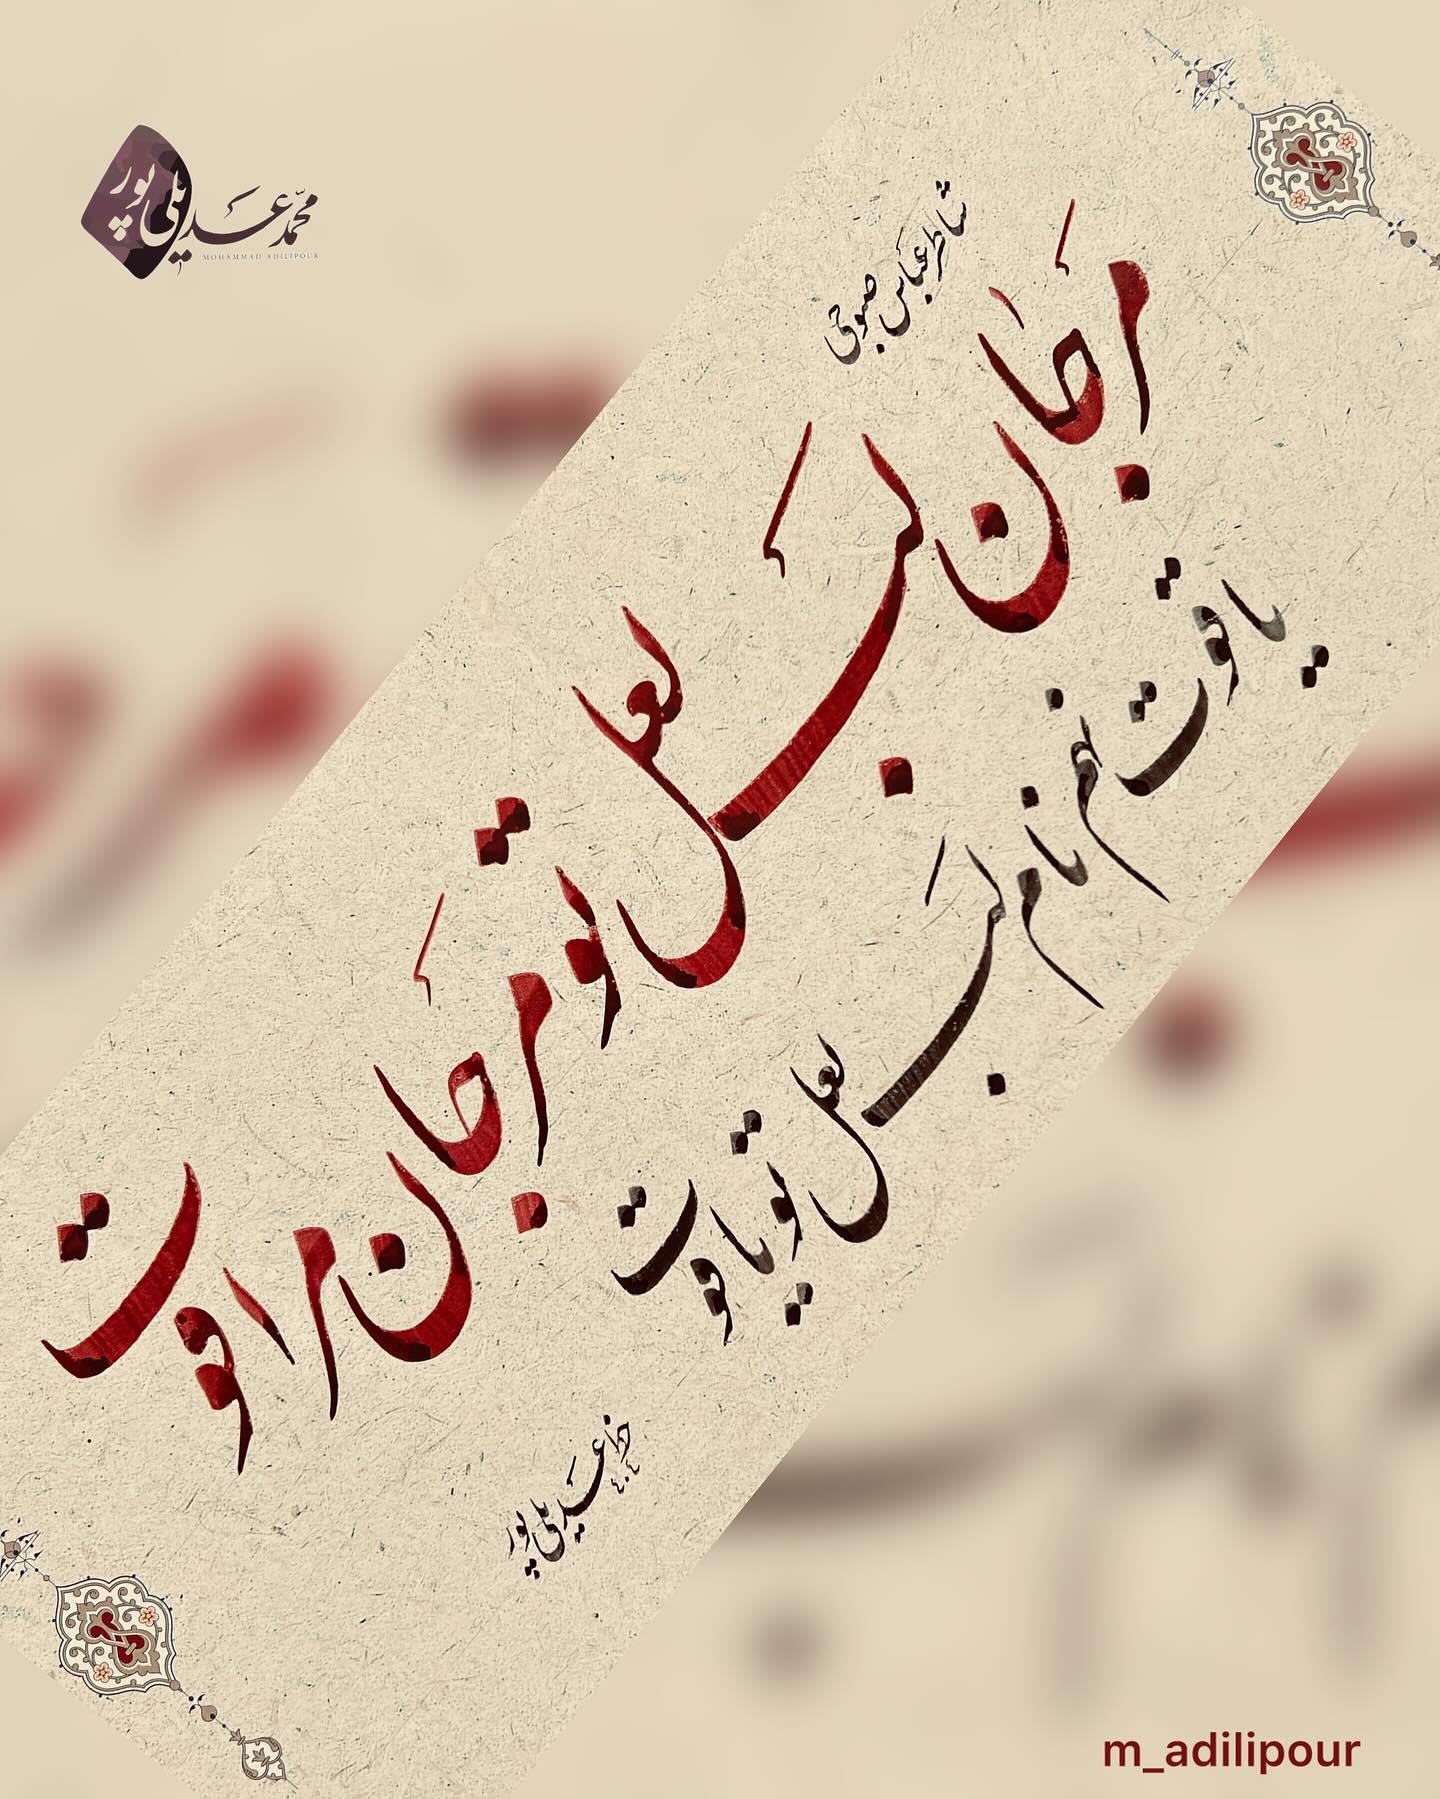 محمّد عدیلی پور
MOHAMMAD ADILIPOUR
شاطر عباس صبوحی
مرجان لب لعل تو مر جان مرا قوت
یاقوت نهم نام لب لعل تو یا قوت
خط عدیلی پور
۴۰۴
m_adilipour